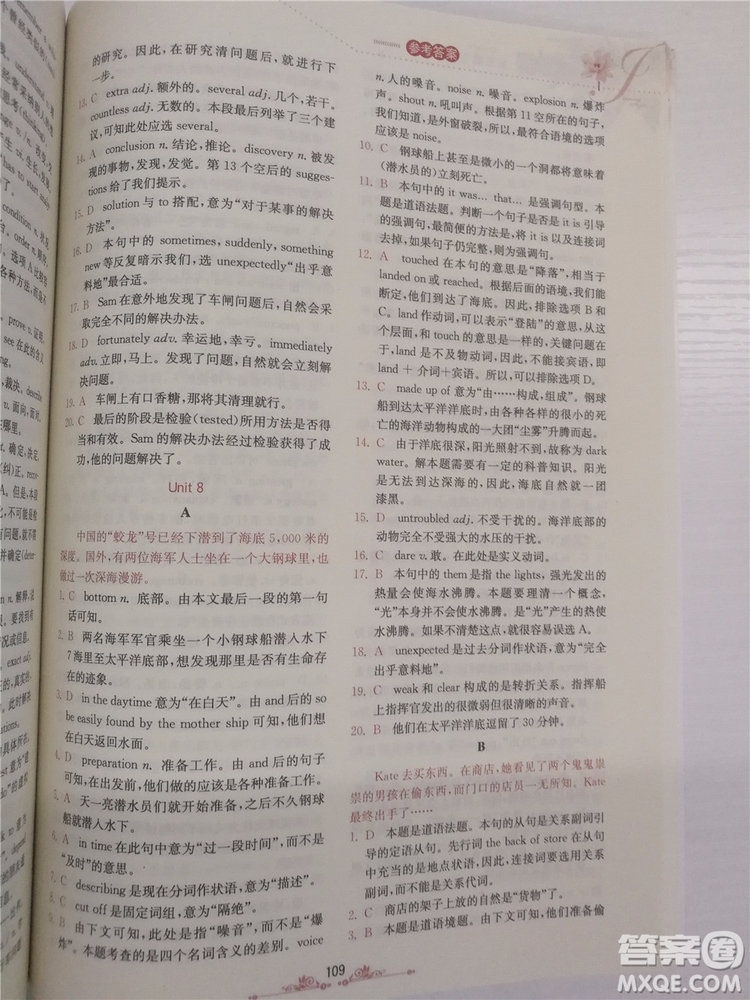 参考答案
的研究。因此，在研究清问题后，就可以进行下
一步。
13. C extra adj. 额外的。several adj. 几个，若干。
countless adj. 无数的。本段最后提到了三个建
议，可知此处应选 several。
14. A conclusion n. 结论，推论。discovery n. 被
发现的事物，发现，发觉。第 13 个空后的 sugges-
tions 给了我们提示。
15. D solution 与 to 搭配，意为“对于某事的解决
方法”。
16. D 本句中的 sometimes, suddenly, something
new 等反复暗示我们，选 unexpectedly“出乎意
料地”最合适。
17. B Sam 在意外地发现了车闸问题后，自然会采
取完全不同的解决办法。
18. D fortunately adv. 幸运地，幸亏。immediately
adv. 立即，马上。发现了问题，自然就会立刻解
决问题。
19. A 车闸上有口香糖，那将其清理就行。
20. C 最后的阶段是检验(tested)所用方法是否得
当和有效。Sam 的解决办法经过检验获得了成
功，他的问题解决了。
Unit 8
A
中国的“蛟龙”号已经下潜到了海底 5,000 米的
深度。国外，有两位海军人士坐在一个大钢球里，也
做过一次深海漫游。
1. C bottom n. 底部。由本文最后一段的第一句
话可知。
2. B 两名海军军官乘坐一个小钢球船潜入水下
7 海里至太平洋底部，想发现那里是否有生命存
在的迹象。
3. D in the daytime 意为“在白天”。由 and 后的 so
be easily found by the mother ship 可知，他们想
在白天返回水面。
4. D preparation n. 准备工作。由 and 后的句子
可知，在出发前，他们做的应该是各种准备工作。
5. A 天一亮潜水员们就开始准备，然后让小钢球
船就潜入水下。
6. A in time 在此句中意为“过一段时间”，而不是
“及时”的意思。
7. C describing 是现在分词作状语，意为“描述”。
8. C cut off 是固定词组，意为“隔绝”。
9. B 由下文可知，此处是指“噪音”，而不是“爆
炸”。本题考查的是四个名词含义的差别。voice
n. 人的嗓音。noise n. 噪音。explosion n. 爆炸
声。shout n. 吼叫声。根据第 11 空所在的句子，
我们知道，是外窗破裂。所以，最符合语境的选项
应该是 noise。
10. C 钢球船上甚至是微小的一个洞都将意味着
(潜水员的)立刻死亡。
11. B 本句中的 it was... that... 是强调句型。本
题是语法题。判断一个句子是否是 it is 引导
的强调句，最简便的方法是，将 it is 以及连接词
去掉，如果句子仍完整，则为强调句。
12. A touched 在本句的意思是“降落”，相当于
landed on 或 reached。根据后面的内容，我们可以
判断，他们又到达了海底。因此，排除选项 B 和
C。land 作动词，可以表示“登陆”的意思，从这
个层面，和 touch 的意思是一样的。但关键问题
是，land 是不及物动词，因此，不能接宾语，即
land + 介词 + 宾语。所以，可以排除选项 D。
13. C made up of 意为“由……构成，组成”。钢球
船到达太平洋洋底后，由各种各样的很小的死
亡的海洋动物构成的一大团“尘雾”升腾而起。
14. C 由于洋底很深，阳光照射不到，故称为 dark
water。解本题需要一定的科普知识。阳光
是无法达到深海的，自然洋底就一团
漆黑。
15. D untroubled adj. 不受干扰的。海洋底部的
动物完全不受强大的水压的干扰。
16. C dare v. 敢。在此处是实义动词。
17. B 本句中的 them 是指 the lights，强光发出的
热量会使海水沸腾。这里要清理一个概念，
“光”本身并不会使水沸腾。是“光”产生的热使
水沸腾。如果没有读懂此句，很容易误选 A。
18. A unexpected 是过去分词作状语，意为“完全
出乎意料地”。
19. C weak 和 clear 构成的是转折关系。指挥船
上指挥官发出的很微弱但很清晰的声音。
20. B 他们在太平洋洋底逗留了 30 分钟。
B
Kate 去买东西。在商店，她看见了两个鬼鬼祟
祟的男孩在偷东西，而门口的店员一无所知。Kate
最终出手了……
1. D 本题是语法题。本句的从句是关系副词引
导的定语从句。先行词 the back of store 在从句
中充当的是地点状语，因此，连接词要选用关系
副词，而不能用关系代词。
2. C 商店的架子上放的自然的是“货物”了。
3. B 本题是语境题。由下文可知，他们准备偷
109
答案圈
MXQE.COM